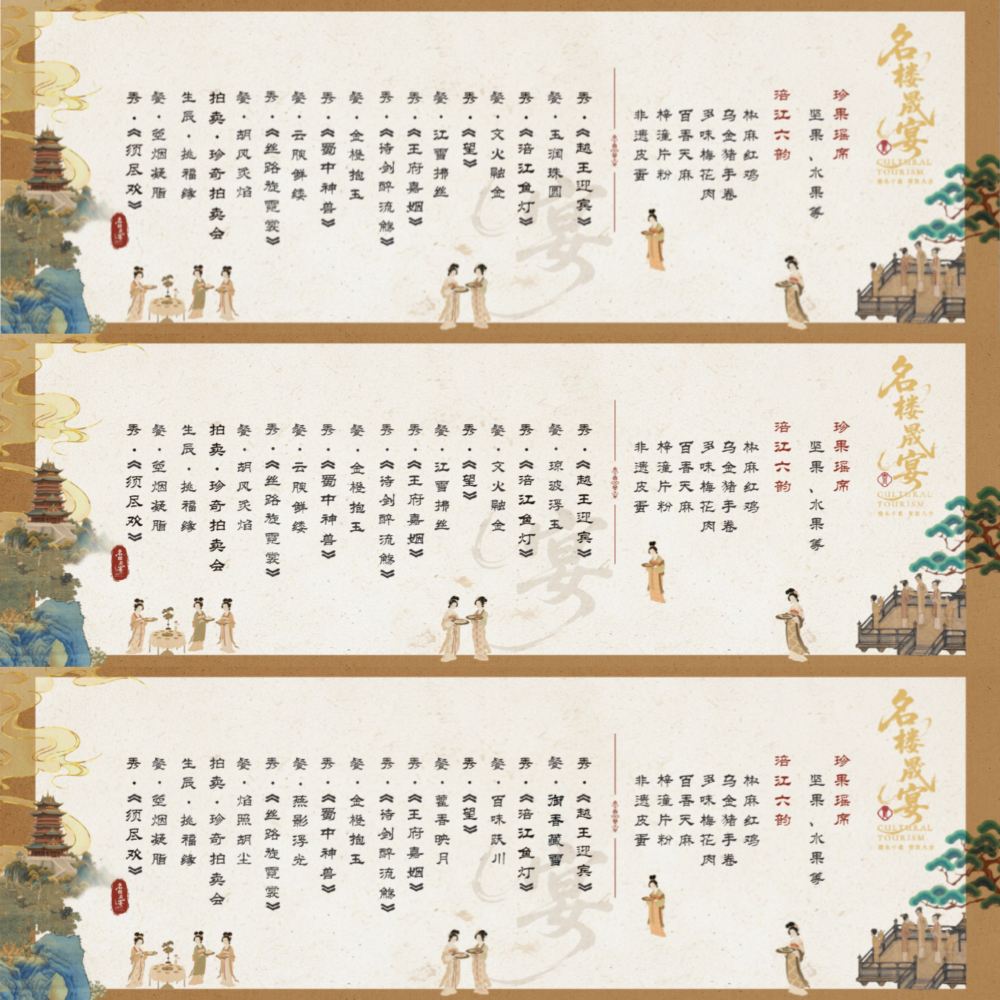 名楼晟宴
CULTURAL
TOURISM
珍果瑶席
坚果、水果等
涪江六韵
椒麻红鸡
乌金猪手卷
多味梅花肉
百香天麻
梓潼片粉
非遗皮蛋
秀·《越王迎宾》
餐·玉润珠圆
秀·《涪江鱼灯》
餐·文火融金
秀·《望》
餐·江雪拂丝
秀·《王府嘉姻》
秀·《诗剑醉流觞》
餐·金橙抱玉
秀·《蜀中神兽》
餐·云腴鲜缕
秀·《丝路旋霓裳》
餐·胡风炙焰
拍卖·珍奇拍卖会
生辰·挑福缘
餐·烟凝脂
秀·《须尽欢》
宴
名楼晟宴
CULTURAL
TOURISM
珍果瑶席
坚果、水果等
涪江六韵
椒麻红鸡
乌金猪手卷
多味梅花肉
百香天麻
梓潼片粉
非遗皮蛋
秀·《越王迎宾》
餐·琼波浮玉
秀·《涪江鱼灯》
餐·文火融金
秀·《望》
餐·江雪拂丝
秀·《王府嘉姻》
秀·《诗剑醉流觞》
餐·金橙抱玉
秀·《蜀中神兽》
餐·云腴鲜缕
秀·《丝路旋霓裳》
餐·胡风炙焰
拍卖·珍奇拍卖会
生辰·挑福缘
餐·烟凝脂
秀·《须尽欢》
宴
名楼晟宴
CULTURAL
TOURISM
珍果瑶席
坚果、水果等
涪江六韵
椒麻红鸡
乌金猪手卷
多味梅花肉
百香天麻
梓潼片粉
非遗皮蛋
秀·《越王迎宾》
餐·御香藏雪
秀·《涪江鱼灯》
餐·百味跃川
秀·《望》
餐·藿香映月
秀·《王府嘉姻》
秀·《诗剑醉流觞》
餐·金橙抱玉
秀·《蜀中神兽》
餐·燕影浮光
秀·《丝路旋霓裳》
餐·焰照胡尘
拍卖·珍奇拍卖会
生辰·挑福缘
餐·烟凝脂
秀·《须尽欢》
宴